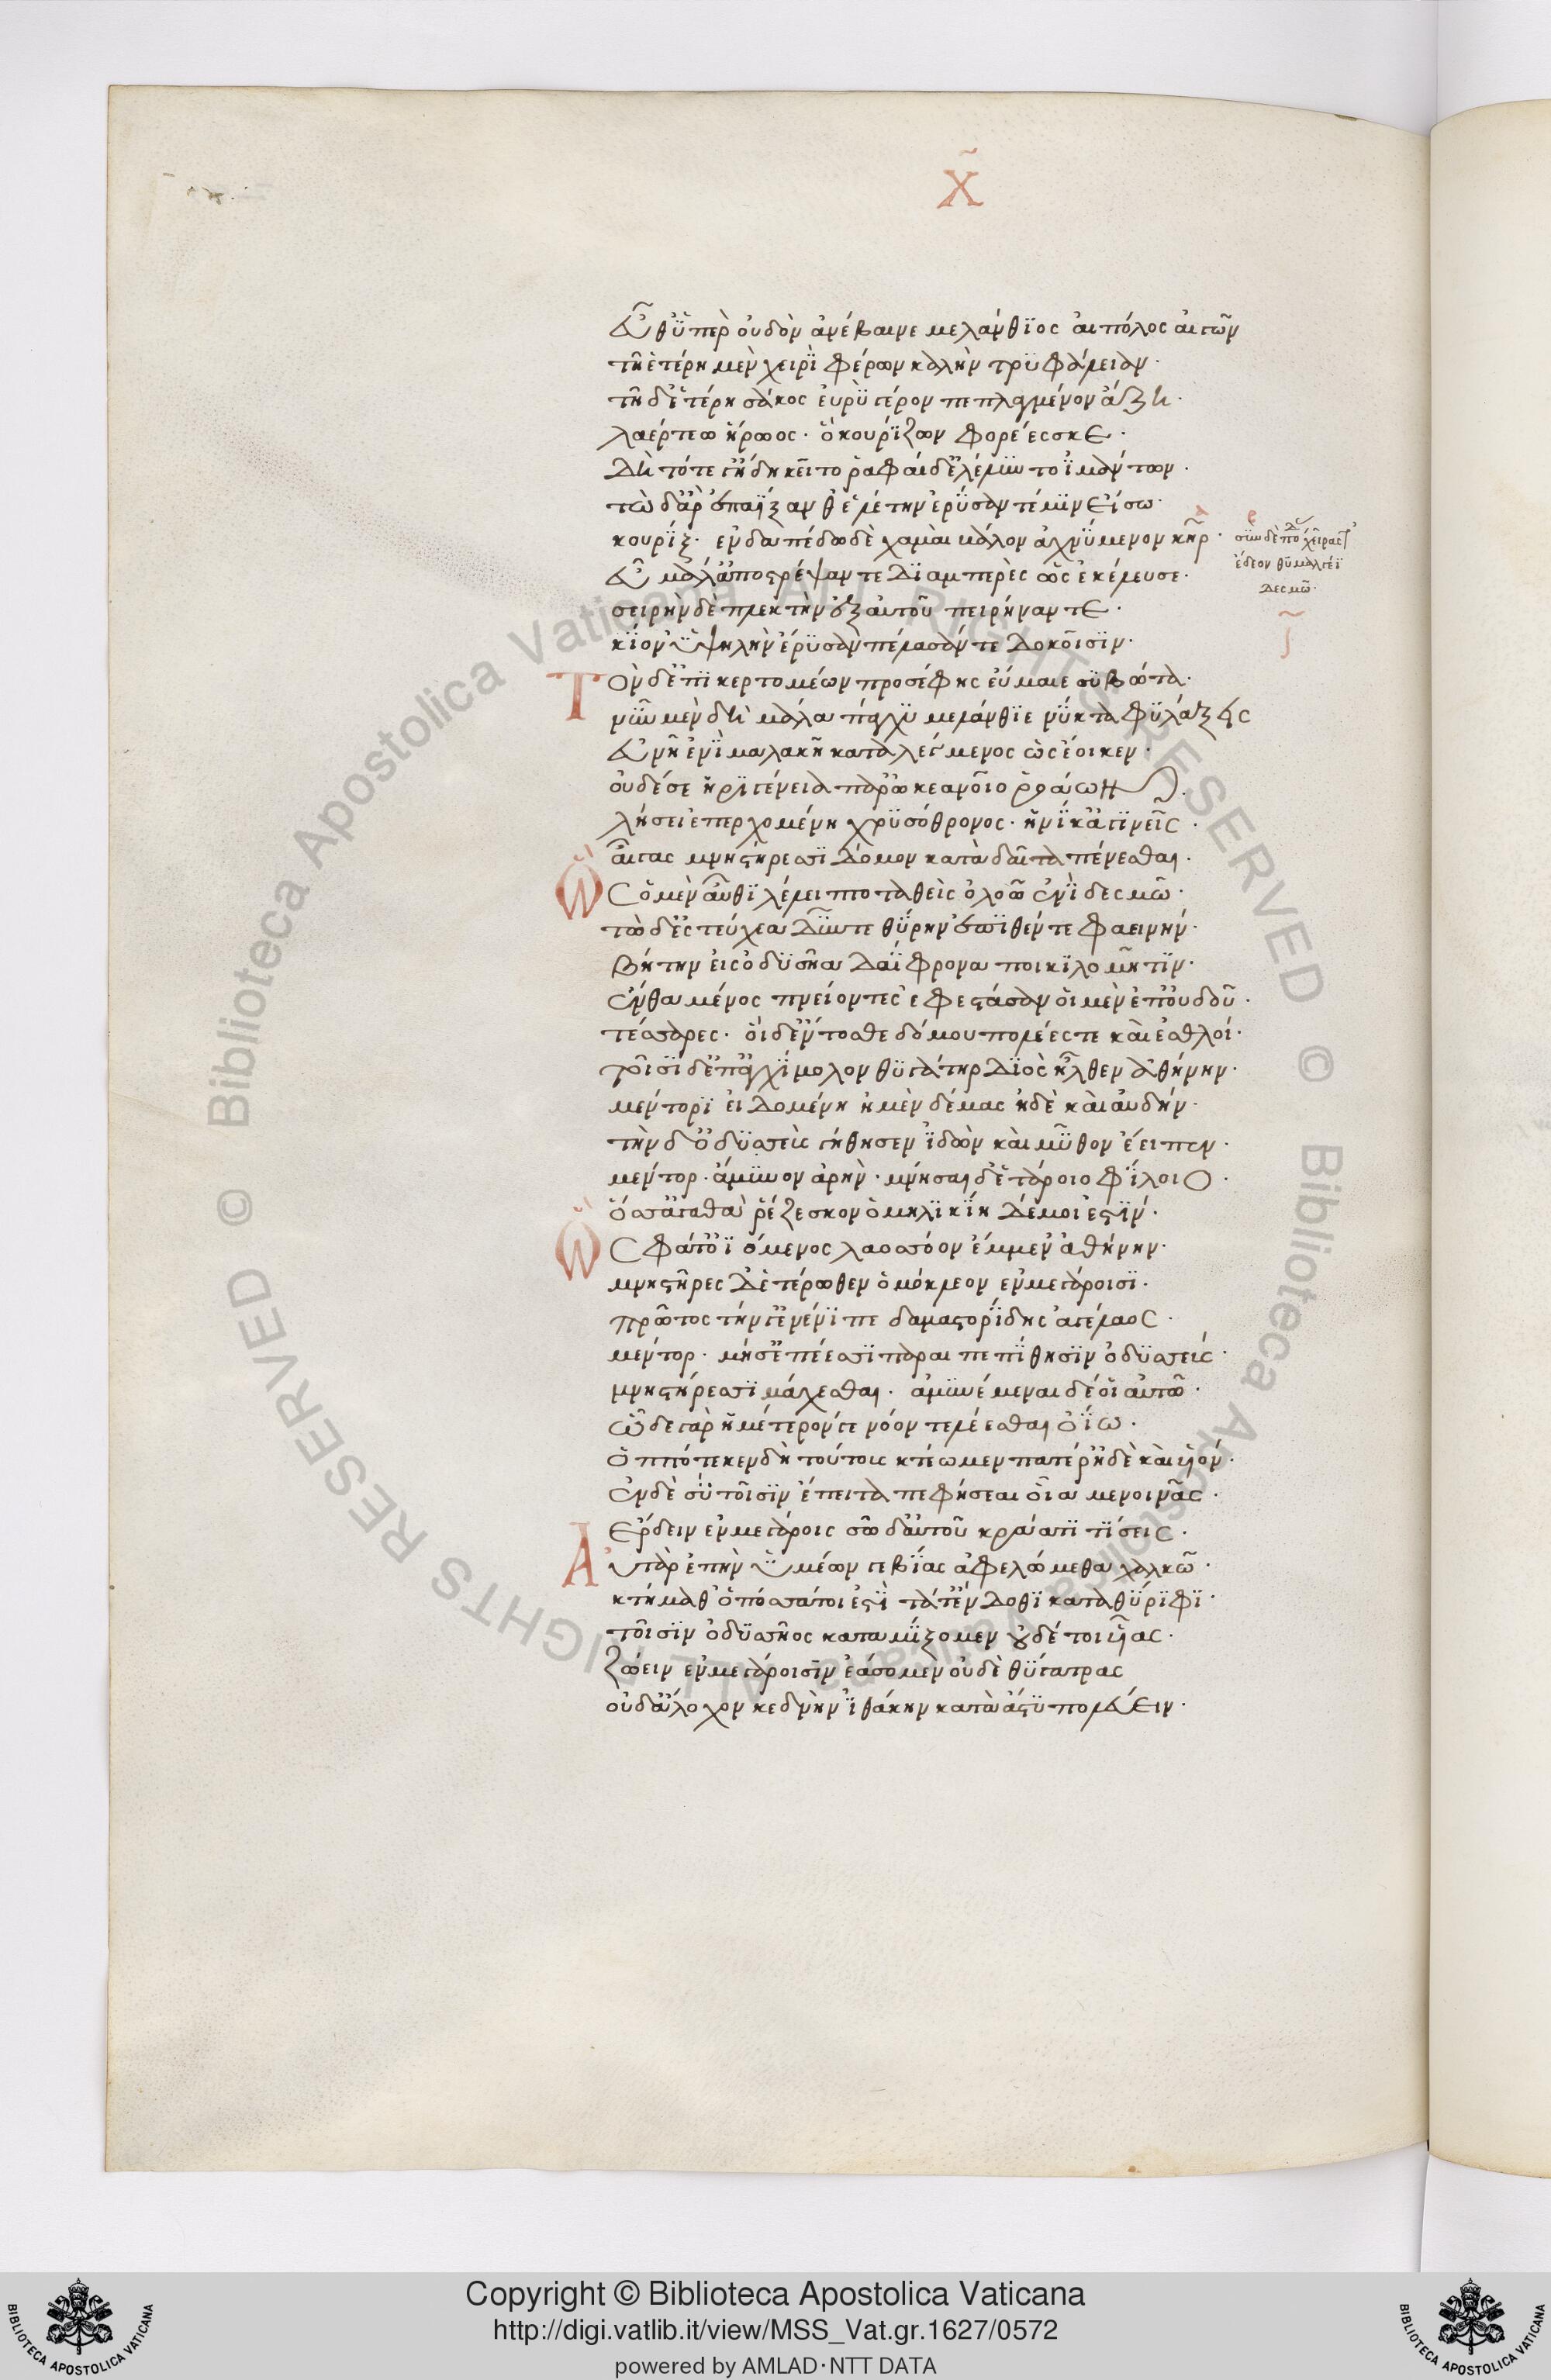 χ̃
εὖθ' ὑπὲρ οὐδὸν ἀνέβαινε μελάνθιος αἰπόλος αἰγῶν
τῆ ἑτέρη μὲν χειρὶ φέρων καλὴν τρυφάλειαν·
τῆ δ' ἑτέρη σάκος εὐρὺ γέρον πεπλαγμένον ἄζη·
λαέρτεω ἥρωος· ὃ κουρίζων φορέεσκε·
δὴ τότε γ' ἤδη κεῖτο ῥαφαὶ δ' ἐλέλυντο ἱμάντων·
τὼ δ' ἂρ ἐπαΐξανθ' ἑλέτην ἔρυσάν τέ μιν εἴσω·
κουρίξ· ἐν δαπέδω δὲ χαμαὶ βάλον ἀχνύμενον κῆρ·
σὺν δὲ πόδας χεῖρας τ'
ἔδεον θυμαλγέϊ
δεσμῶ·
εὖ μάλ' ἀποστρέψαντε διαμπερὲς ὡς ἐκέλευσε·
σειρὴν δὲ πλεκτὴν ἐξ αὐτοῦ πειρήναντε·
κίον' ὑψηλὴν ἔρυσαν πέλασάν τε δοκοῖσιν·
Τὸν δ' ἐπικερτομέων προσέφης εὔμαιε συβῶτα·
νῦν μὲν δὴ μάλα πάγχυ μελάνθιε νύκτα φυλάξεις
εὐνῆ ἐνὶ μαλακῆ καταλέγμενος ὡς ἐόικεν·
οὐδέ σε ἠριγένεια παρ' ὠκεανοῖο ῥοάων
λήσει ἐπερχομένη χρυσόθρονος· ἡνίκ' ἀγινεῖς·
αἶγας μνηστήρεσσι δόμον κατὰ δαῖτα πένεσθαι·
Ὣς ὁ μὲν αὖθι λέλειπτο ταθεὶς ὀλοῶ ἐνὶ δεσμῶ·
τὼ δ' ἐς τεύχεα δύντε θύρην ἐπιθέντε φαεινήν·
βήτην εἰς ὀδυσῆα δαΐφρονα ποικιλομήτιν·
ἔνθα μένος πνείοντες ἐφέστασαν οἱ μὲν ἐπ' οὐδοῦ·
τέσσαρες· οἱ δ' ἔντοσθε δόμου πολέες τε καὶ ἐσθλοί·
τοῖσι δ' ἐπ' ἀγχίμολον θυγάτηρ διὸς ἦλθεν ἀθήνην·
μέντορι εἰδομένη ἠμὲν δέμας ἠδὲ καὶ αὐδήν·
τὴν δ' ὀδυσσεὺς γήθησεν ἰδὼν καὶ μῦθον ἔειπεν·
μέντορ· ἄμυνον ἀρὴν· μνῆσαι δ' ἑτάροιο φίλοιο·
ὅς σ' ἀγαθὰ ῥέζεσκον ὁμηλικίη δέ μοι ἐστίν·
Ὣς φάτ' ὀϊόμενος λαοσσόον ἔμμεν' ἀθήνην·
μνηστῆρες δ' ἑτέρωθεν ὁμόκλεον ἐν μεγάροισι·
πρῶτος τήν γ' ἐνένιπε δαμαστορίδης ἀγέλαος·
μέντορ· μή σ' ἐπέεσσι παραιπεπίθησιν ὀδυσσεύς·
μνηστήρεσσι μάχεσθαι· ἀμυνέμεναι δέ οἱ αὐτῶ·
ὧδε γὰρ ἡμέτερόν γε νόον τελέεσθαι ὀΐω·
ὁππότε κεν δὴ τούτους κτέωμεν πατέρ' ἠδὲ καὶ υἱόν·
ἐν δὲ σὺ τοῖσιν ἔπειτα πεφήσεαι οἷα μενοινᾶς·
ἔρδειν ἐν μεγάροις σῶ δ' αὐτοῦ κράατι τίσεις·
Αὐτὰρ ἐπὴν ὑμέων γε βίας ἀφελώμεθα χαλκῶ·
κτήμαθ' ὁπόσσα τοι ἐστὶ τά τ' ἔνδοθι κατα θύριφι·
τοῖσιν ὀδυσσῆος καταμίξομεν οὐδέ τοι υἷας·
ζώειν ἐν μεγάροισιν ἐάσομεν οὐδὲ θύγατρας
οὐδ' ἄλοχον κεδνὴν ἰθάκην κατὰ ἄστυ πολεύειν·
Copyright © Biblioteca Apostolica Vaticana
http://digi.vatlib.it/view/MSS_Vat.gr.1627/0572
powered by AMLAD·NTT DATA